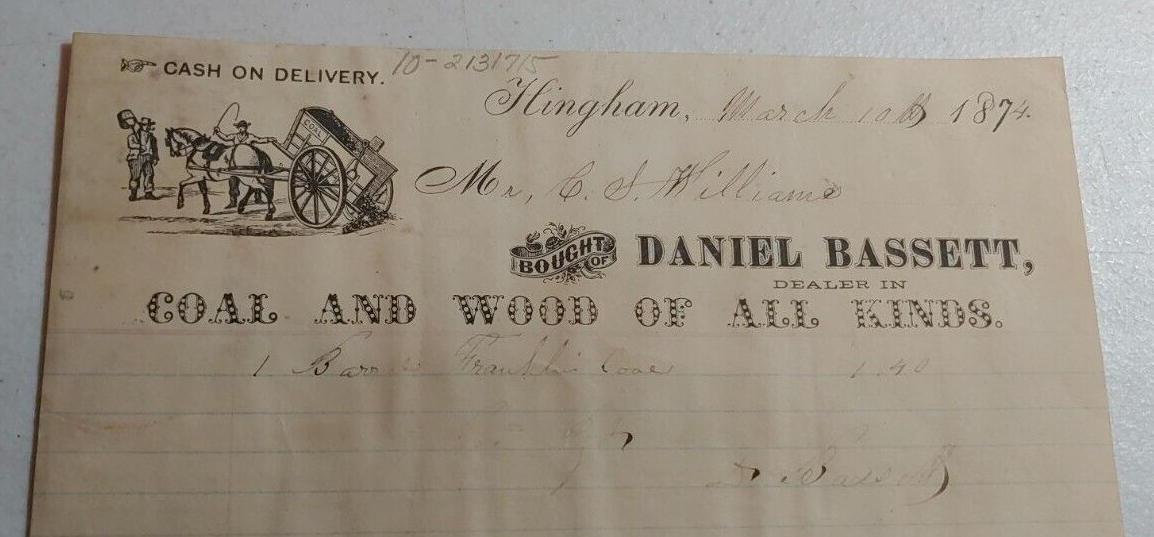 CASH ON DELIVERY. 10-2131715
Hingham, March 10th 1874.
COAL
Mr, C. S. Williams
BOUGHT OF DANIEL BASSETT,
DEALER IN
COAL AND WOOD OF ALL KINDS.
1 Barr Franklin Coal 1.40
D Bassett